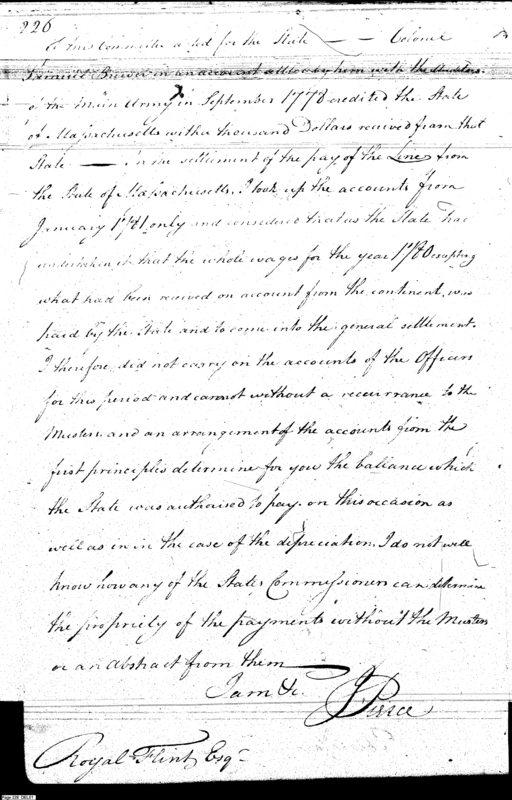 226
To this Committee a ted for the State — — Colonel
Samuel Brewer in an account adt by him with the Auditors
of the Main Army in September 1778 credited the State
of Massachusetts with a thousand Dollars received from that
State — In the settlement of the pay of the Line from
the State of Massachusetts, I took up the accounts from
January 1781 only and considered that as the State had
undertaken it that the whole wages for the year 1780 excepting
what had been received on account from the continent, was
paid by the State and to come into the general settlement.
I therefore did not carry on the accounts of the Officers
for this period and cannot without a recurrance to the
Musters and an arrangement of the accounts from the
first principles determine for you the ballance which
the State was authorised to pay on this occasion as
well as in in the case of the depreciation. I do not well
know how any of the State Commissioners can determine
the propriety of the payments without the Musters
or an abstract from them —
I am &c.
J Pierce
Royal Flint Esqr
Page 226 DBL21